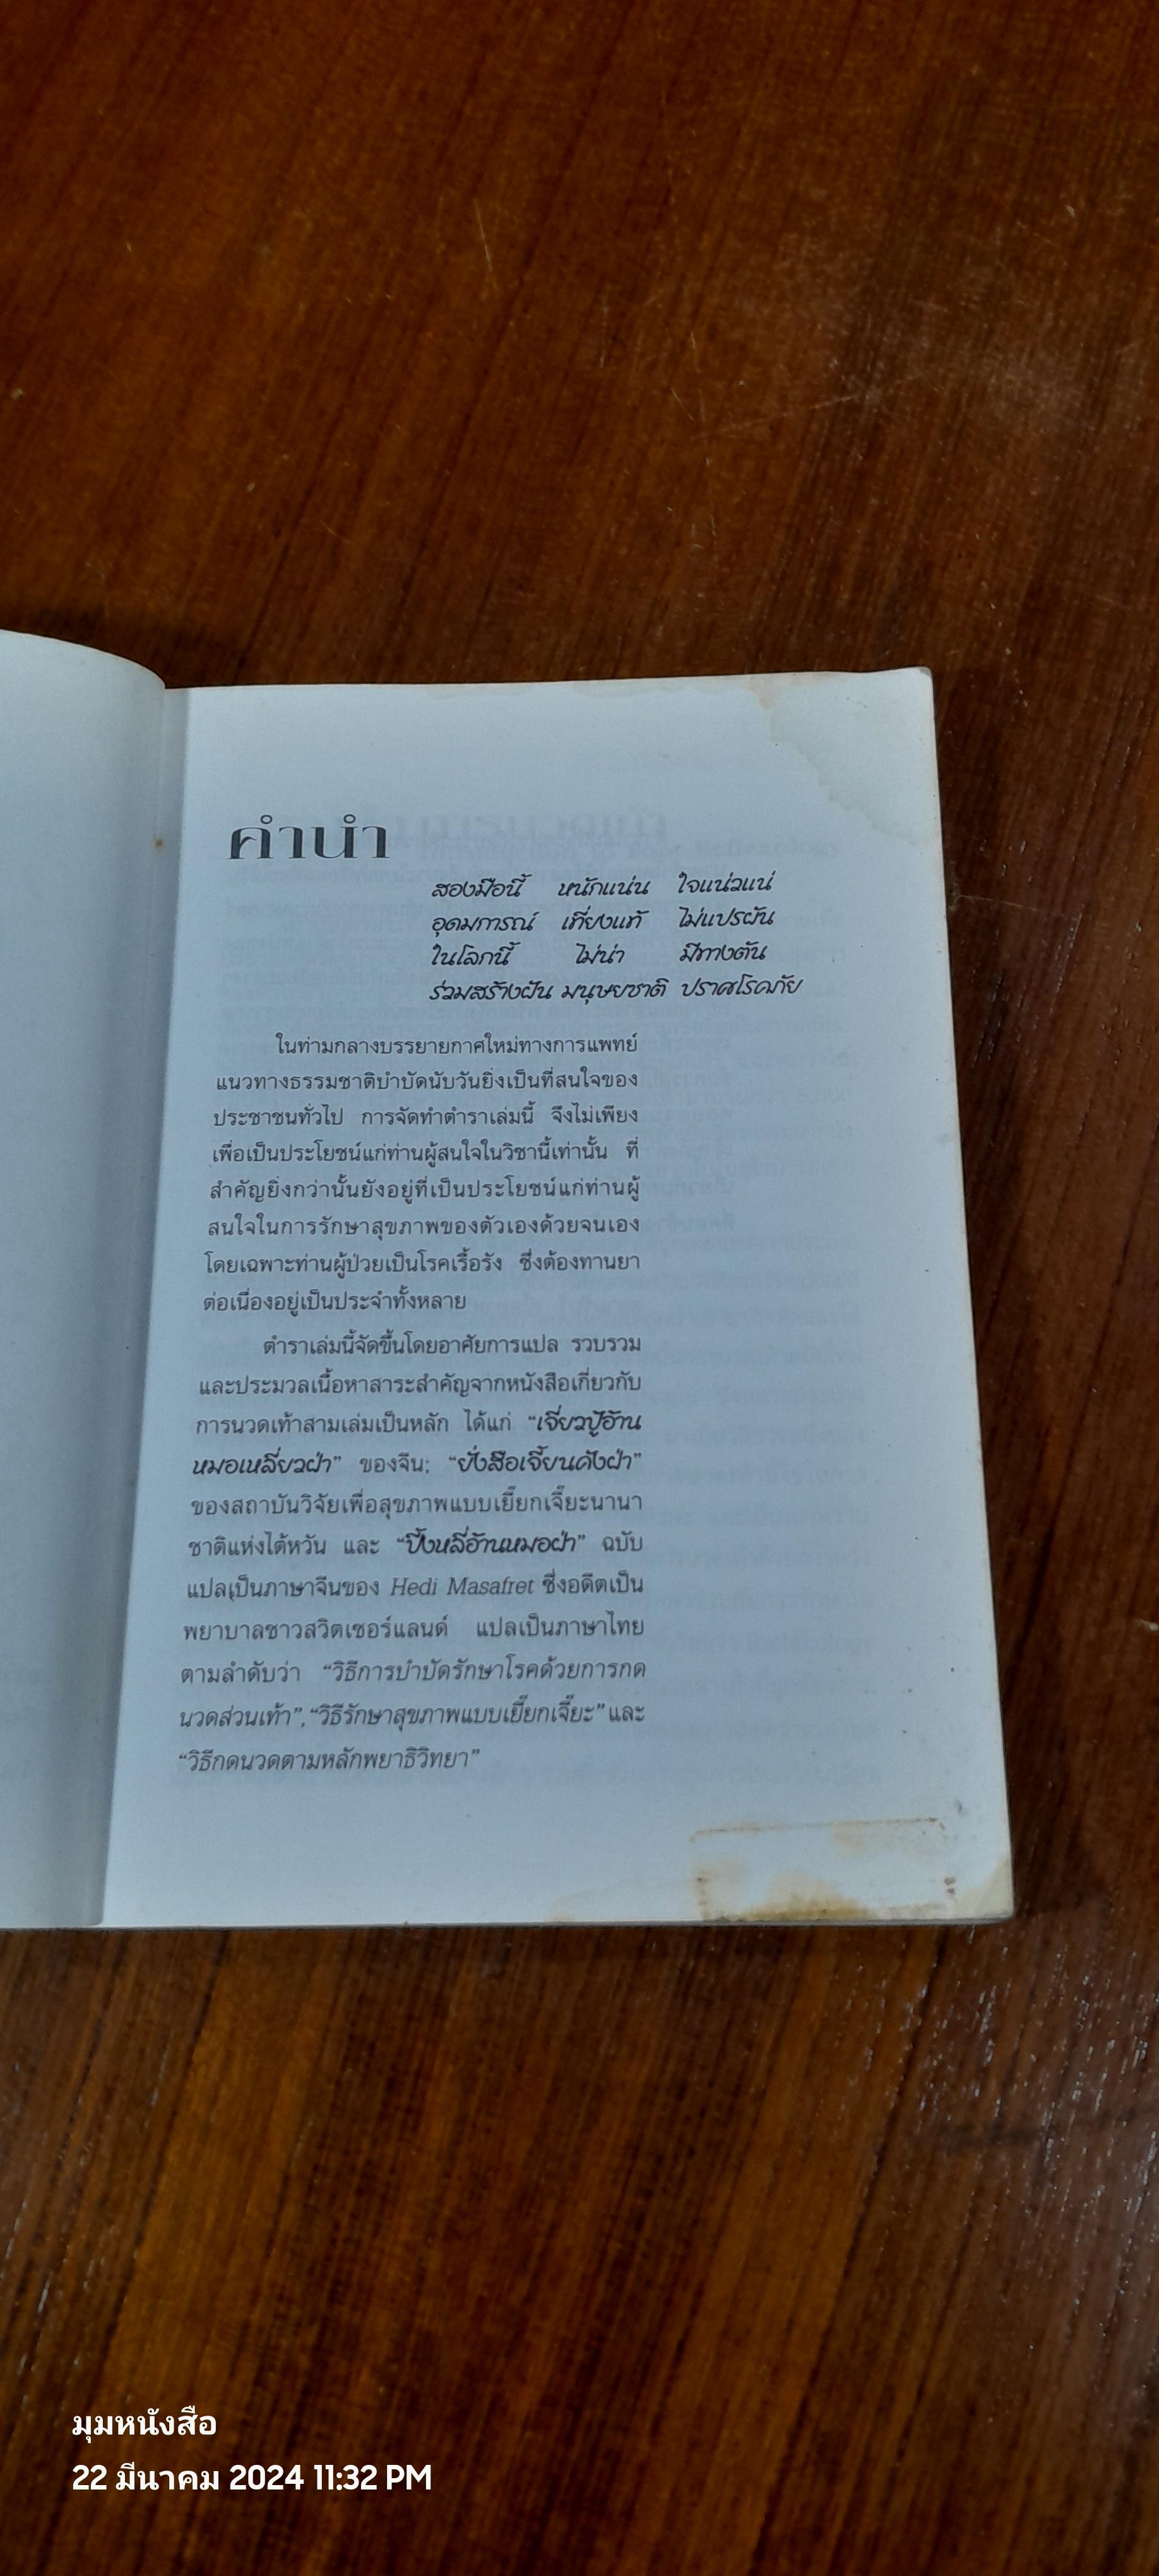 คำนำ
สองมือนี้ หนักแน่น ใจแน่วแน่
อุดมการณ์ เที่ยงแท้ ไม่แปรผัน
ในโลกนี้ ไม่น่า มีทางตัน
ร่วมสร้างฝัน มนุษยชาติ ปราศโรคภัย
ในท่ามกลางบรรยายกาศใหม่ทางการแพทย์
แนวทางธรรมชาติบำบัดนับวันยิ่งเป็นที่สนใจของ
ประชาชนทั่วไป การจัดทำตำราเล่มนี้ จึงไม่เพียง
เพื่อเป็นประโยชน์แก่ท่านผู้สนใจในวิชานี้เท่านั้น ที่
สำคัญยิ่งกว่านั้นยังอยู่ที่เป็นประโยชน์แก่ท่านผู้
สนใจในการรักษาสุขภาพของตัวเองด้วยจนเอง
โดยเฉพาะท่านผู้ป่วยเป็นโรคเรื้อรัง ซึ่งต้องทานยา
ต่อเนื่องอยู่เป็นประจำทั้งหลาย
ตำราเล่มนี้จัดขึ้นโดยอาศัยการแปล รวบรวม
และประมวลเนื้อหาสาระสำคัญจากหนังสือเกี่ยวกับ
การนวดเท้าสามเล่มเป็นหลัก ได้แก่ “เจี่ยวปู้อ้าน
หมอเหลี่ยวฝ่า” ของจีน; “ยั่งสือเจี้ยนคังฝ่า”
ของสถาบันวิจัยเพื่อสุขภาพแบบเยี๊ยกเจี๊ยะนานา
ชาติแห่งไต้หวัน และ “ปิ้งหลี่อ้านหมอฝ่า” ฉบับ
แปลเป็นภาษาจีนของ Hedi Masafret ซึ่งอดีตเป็น
พยาบาลชาวสวิตเซอร์แลนด์ แปลเป็นภาษาไทย
ตามลำดับว่า “วิธีการบำบัดรักษาโรคด้วยการกด
นวดส่วนเท้า”, “วิธีรักษาสุขภาพแบบเยี๊ยกเจี๊ยะ” และ
“วิธีกดนวดตามหลักพยาธิวิทยา”
มุมหนังสือ
22 มีนาคม 2024 11:32 PM